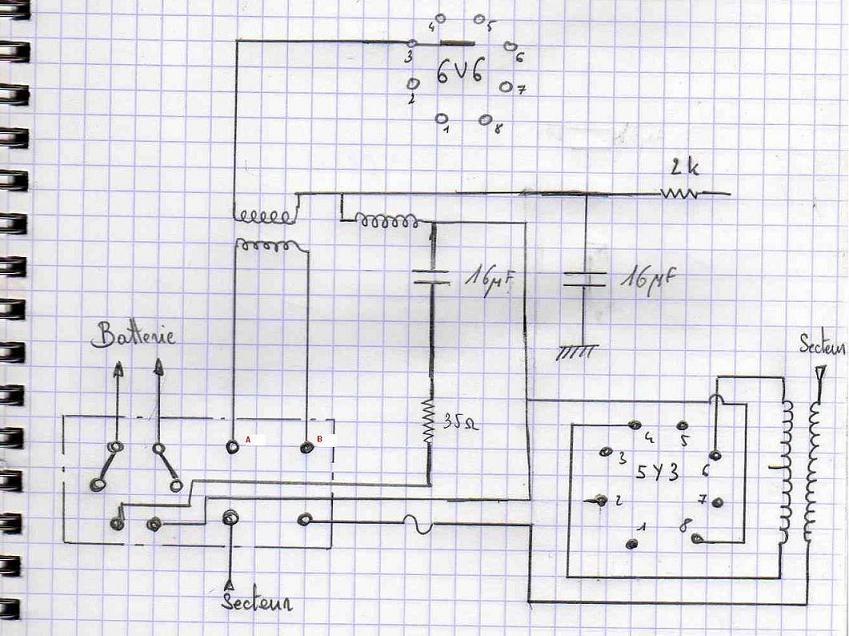 4 5
3 6
6V6
2 7
1 8
2k
16µF 16µF
Batterie
Secteur
A B
35Ω
4 5
3 6
5Y3
2 7
1 8
Secteur